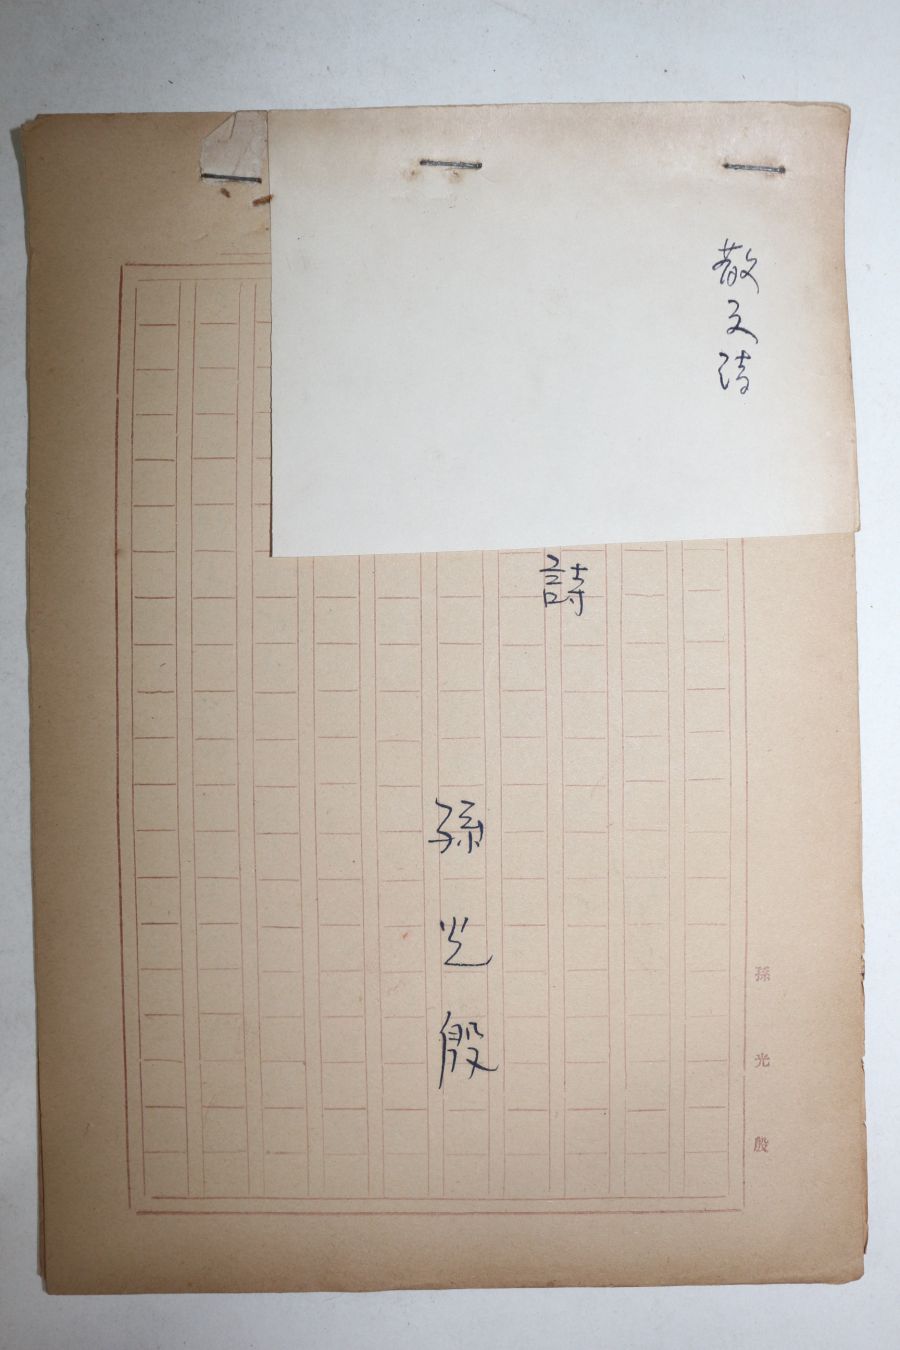 散文诗
詩
孫光殷
孫光殷